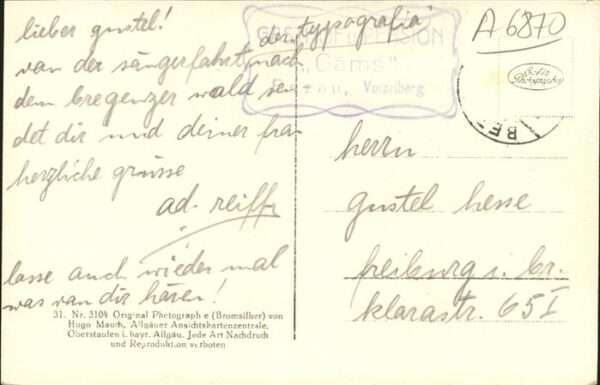 lieber gustel!
von der sängerfahrt der "typografia" nach
dem bregenzer wald sen
det dir und deiner frau
herzliche grüsse
ad. reiff
lasse auch wieder mal
was von dir hören!
31. Nr. 3104 Original Photographie (Bromsilber) von
Hugo Mauch, Allgäuer Ansichtskartenzentrale,
Oberstaufen i. bayr. Allgäu. Jede Art Nachdruck
und Reproduktion verboten
PENSION
„Gams"
Bezau, Vorarlberg
A 6870
BEZ
Echte
Photographie
herrn
gustel hesse
freiburg i. br.
klarastr. 65 I